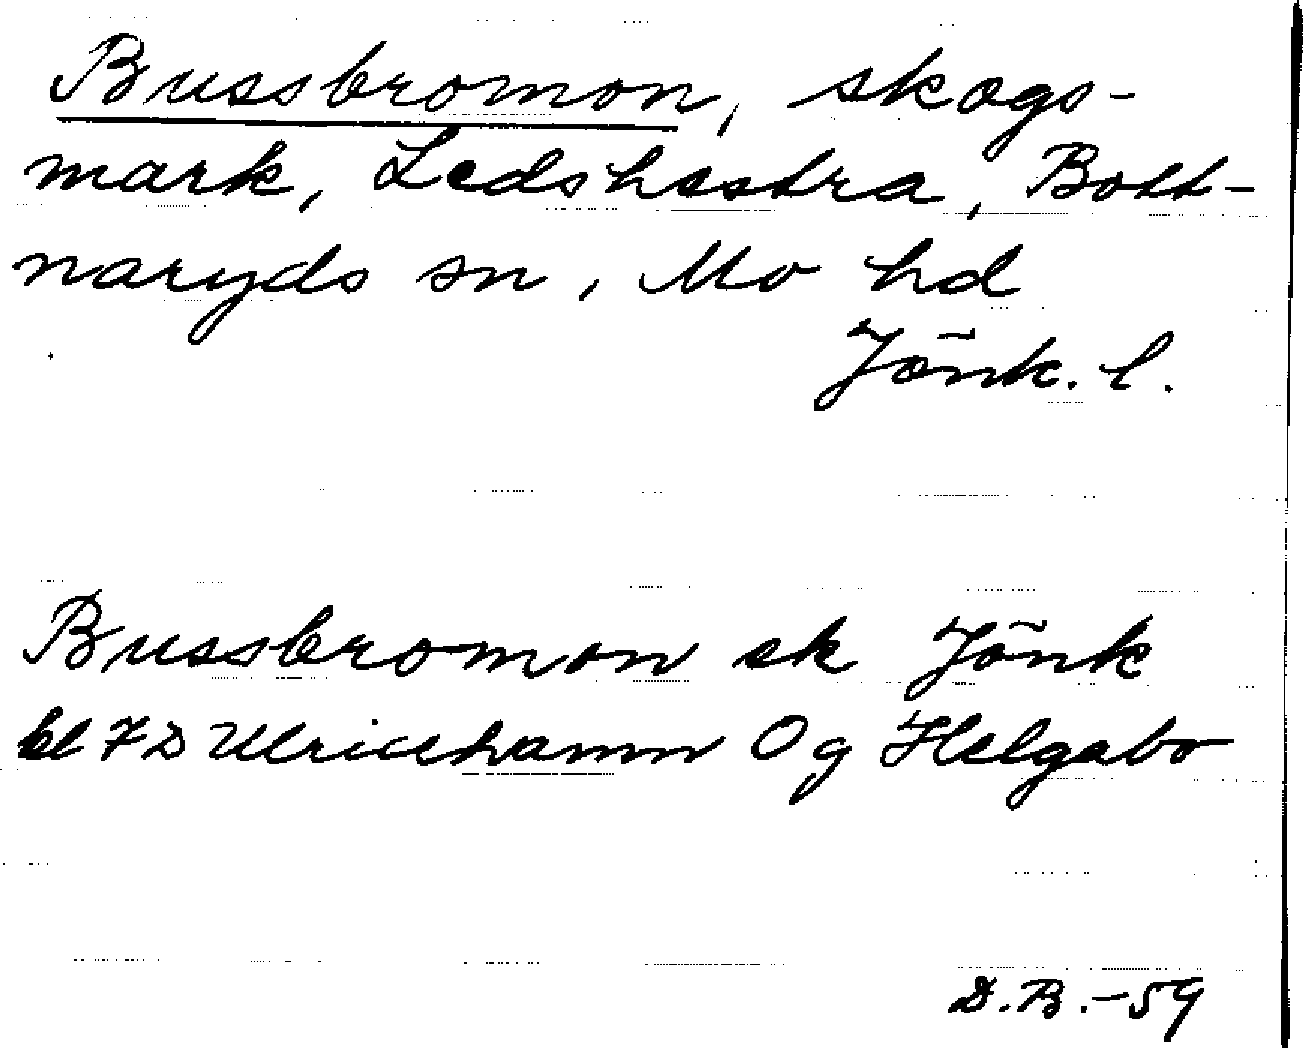 Bussbromon, skogs-
mark, Ledshestra, Bott-
naryds sn, Mo hd
Jönk. l.
Bussbromon sk Jönk
bl 7D Ulricehamn Og Helgabo
D.B.-59